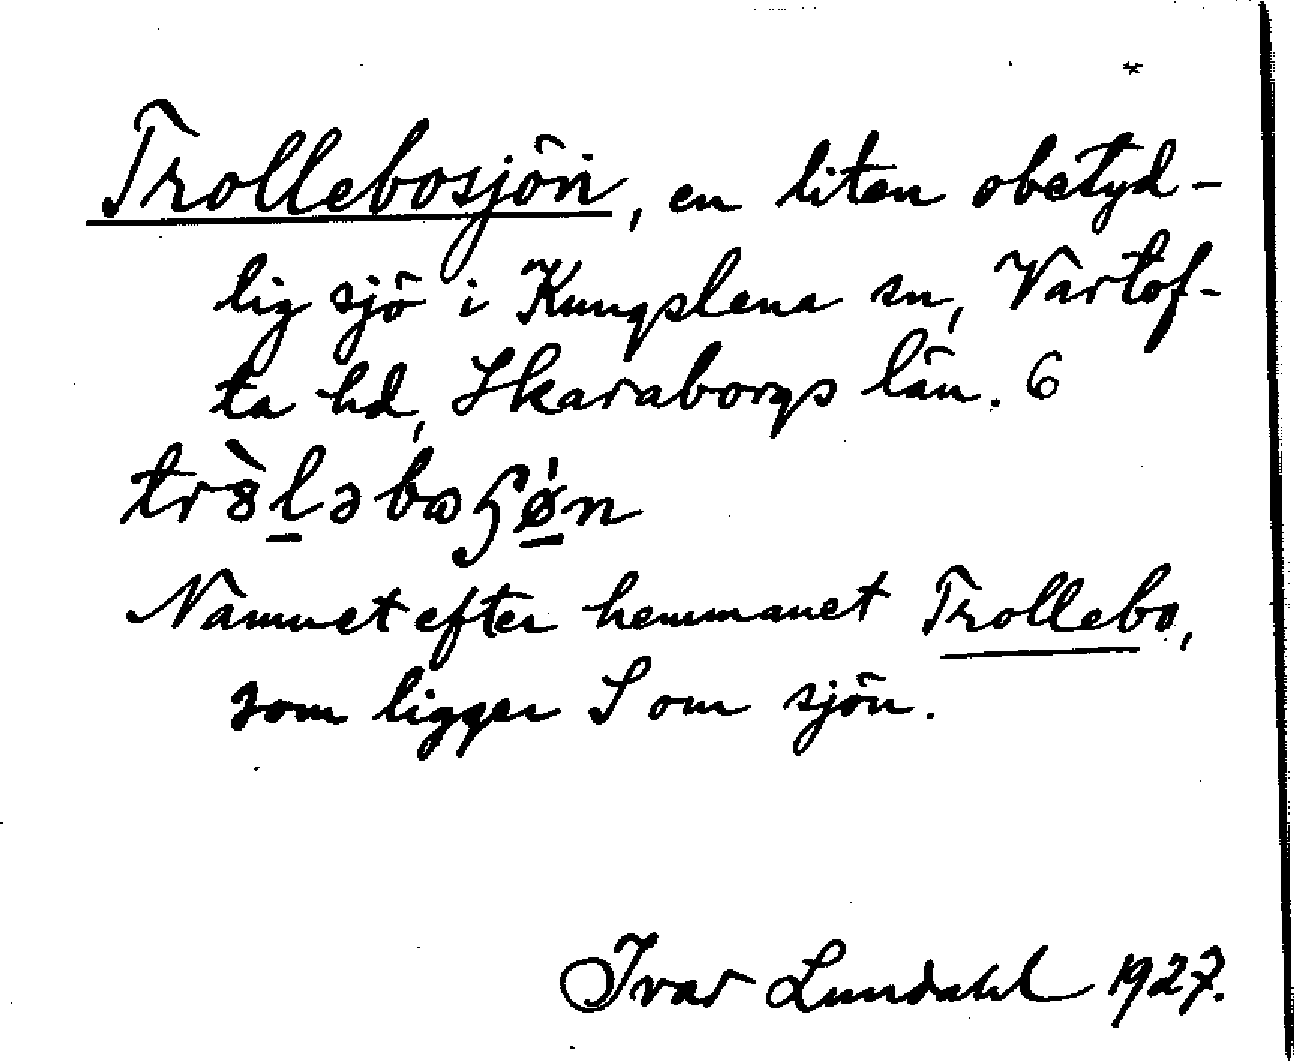 Trollebosjön, en liten obetyd-
lig sjö i Kungslena sn, Vartof-
ta hd, Skaraborgs län. 6
Namnet efter hemmanet Trollebo,
som ligger S om sjön.
Ivar Lundahl 1927.